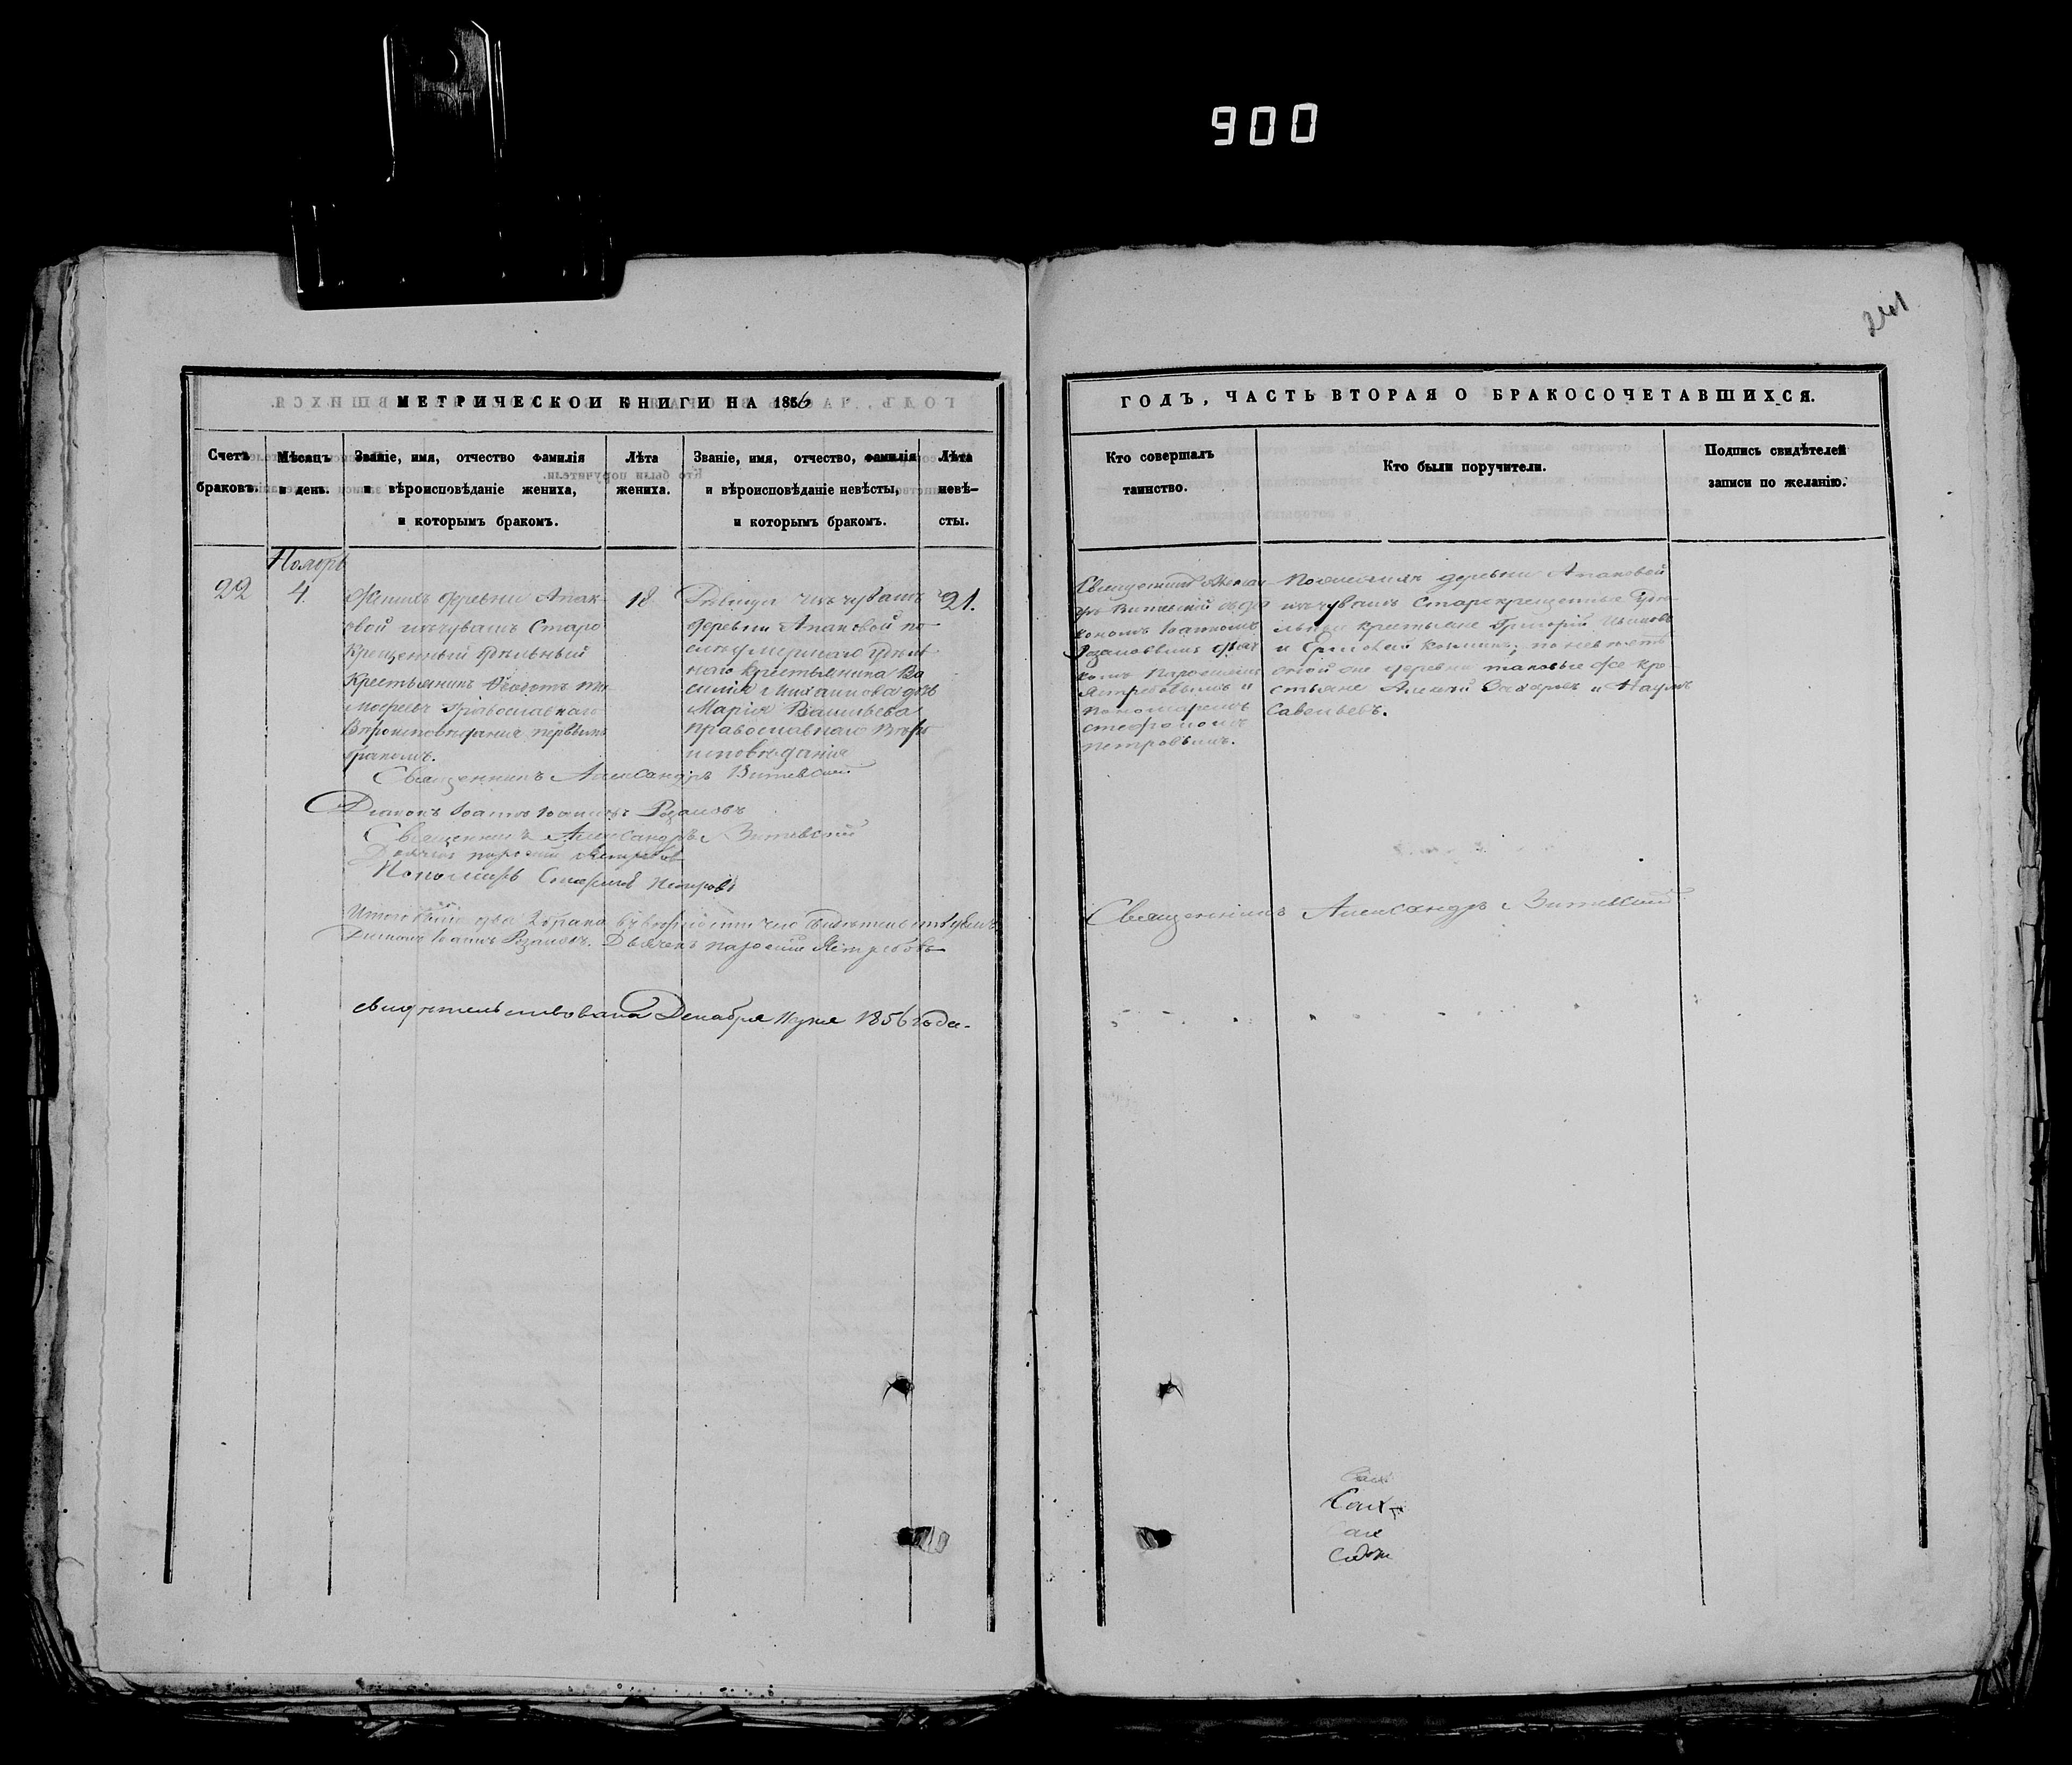 900
241
МЕТРИЧЕСКОЙ КНИГИ НА 1856
ГОДЪ, ЧАСТЬ ВТОРАЯ О БРАКОСОЧЕТАВШИХСЯ.
Счетъ
браковъ.
Мѣсяцъ
и день.
Званіе, имя, отчество фамилія
и вѣроисповѣданіе жениха,
и которымъ бракомъ.
Лѣта
жениха.
Званіе, имя, отчество, фамилія
и вѣроисповѣданіе невѣсты,
и которымъ бракомъ.
Лѣта
невѣ-
сты.
Кто совершалъ
таинство.
Кто были поручители.
Подпись свидѣтелей
записи по желанію.
Ноябрь
22
4.
Женихъ деревни Апак-
овой изъ чувашъ Старо
Крещенный Удѣльный
Крестьянинъ
Православнаго
Вѣроисповѣданія первымъ
бракомъ.
18
Дѣвица изъ чувашъ
деревни Апаковой по-
умершаго Удѣль
наго крестьянина Ва
силія Михайлова дочь
Марія Васильева
православнаго Вѣро
исповѣданія
21.
Священникъ Алексан
дръ Витевскій съ діа
кономъ Іоанномъ
Розановымъ дьяч
комъ
Ястребовымъ и
Пономаремъ
Стефаномъ
Петровымъ.
По женихѣ деревни Апаковой
изъ чувашъ Старокрещенные Удѣ-
льные крестьяне Григорій Ивановъ
и по невѣстѣ
той же деревни таковые же кре-
стьяне Алексѣй Захаровъ и Наумъ
Савельевъ.
Священникъ Александръ Витевскій
Діаконъ Іоаннъ Розановъ
Священникъ Александръ Витевскій
Дьячекъ Ястребовъ
Пономарь Стефанъ Петровъ
Итого два 2 брака
Діаконъ Іоаннъ Розановъ. Дьячекъ Ястребовъ
Священникъ Александръ Витевскій
свидѣтельствована Декабря 1856 года.